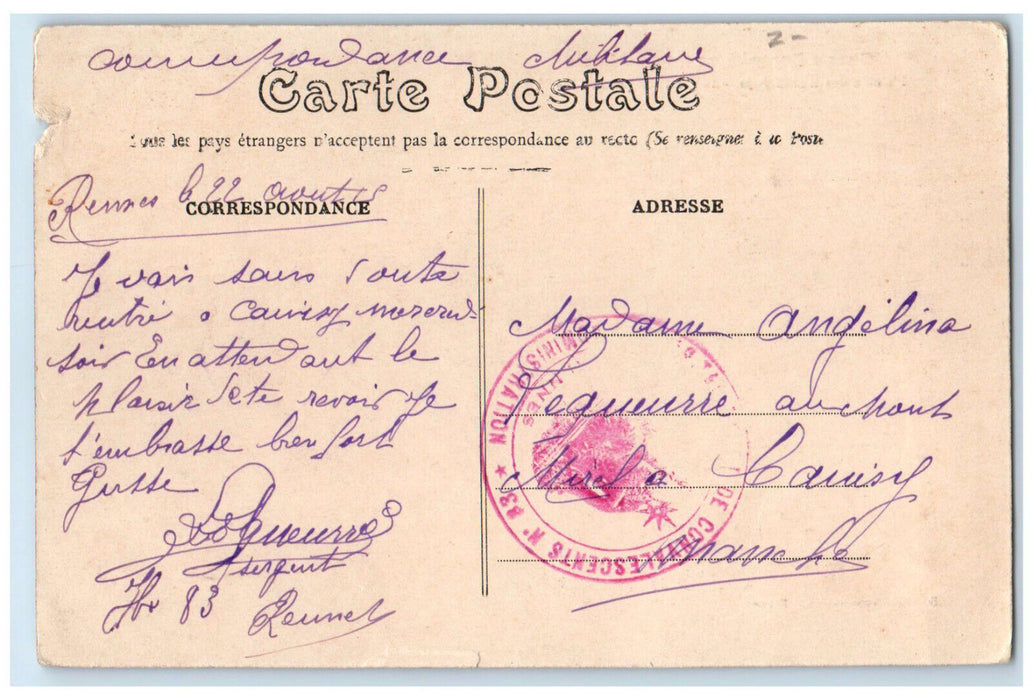 Correspondance Militaire
Carte Postale
Tous les pays étrangers n'acceptent pas la correspondance au recto (Se renseigner à la Poste
Rennes le 22 aout 15
CORRESPONDANCE
ADRESSE
Je vais sans doute
rentré a Cavisy mercredi
soir En attendant le
plaisir de te revoir Je
t'embrasse bien fort
Gusse
Lequeurre
sergent
Hx 83 Rennes
Madame Angélina
Lequeurre au mont
Mirel a Cavisy
Manche
MINISTRATION ★
DE CONVALESCENTS N° 83